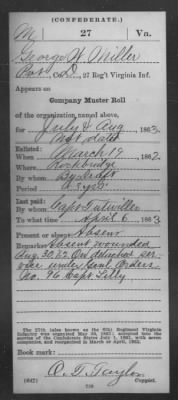 (CONFEDERATE.)
M 27 Va.
George W. Miller
Pvt., Co. D, 27 Reg't Virginia Inf.
Appears on
Company Muster Roll
of the organization named above,
for July & Aug, 1863.
not dated
Enlisted:
When March 19, 1862.
Where Rockbridge
By whom
Period 3 yrs
Last paid:
By whom Capt.
To what time April 6, 1863.
Present or absent Absent
Remarks: Absent wounded
Aug. 30/62 On detached ser-
vice under Genl Orders
No. 96 Capt Lilly
The 27th (also known as the 6th) Regiment Virginia
Infantry was organized May 30, 1861;
Confederate States July 1, 1861, with seven
companies, and reorganized in
Book mark:
C. T. Taylor
(642) Copyist.